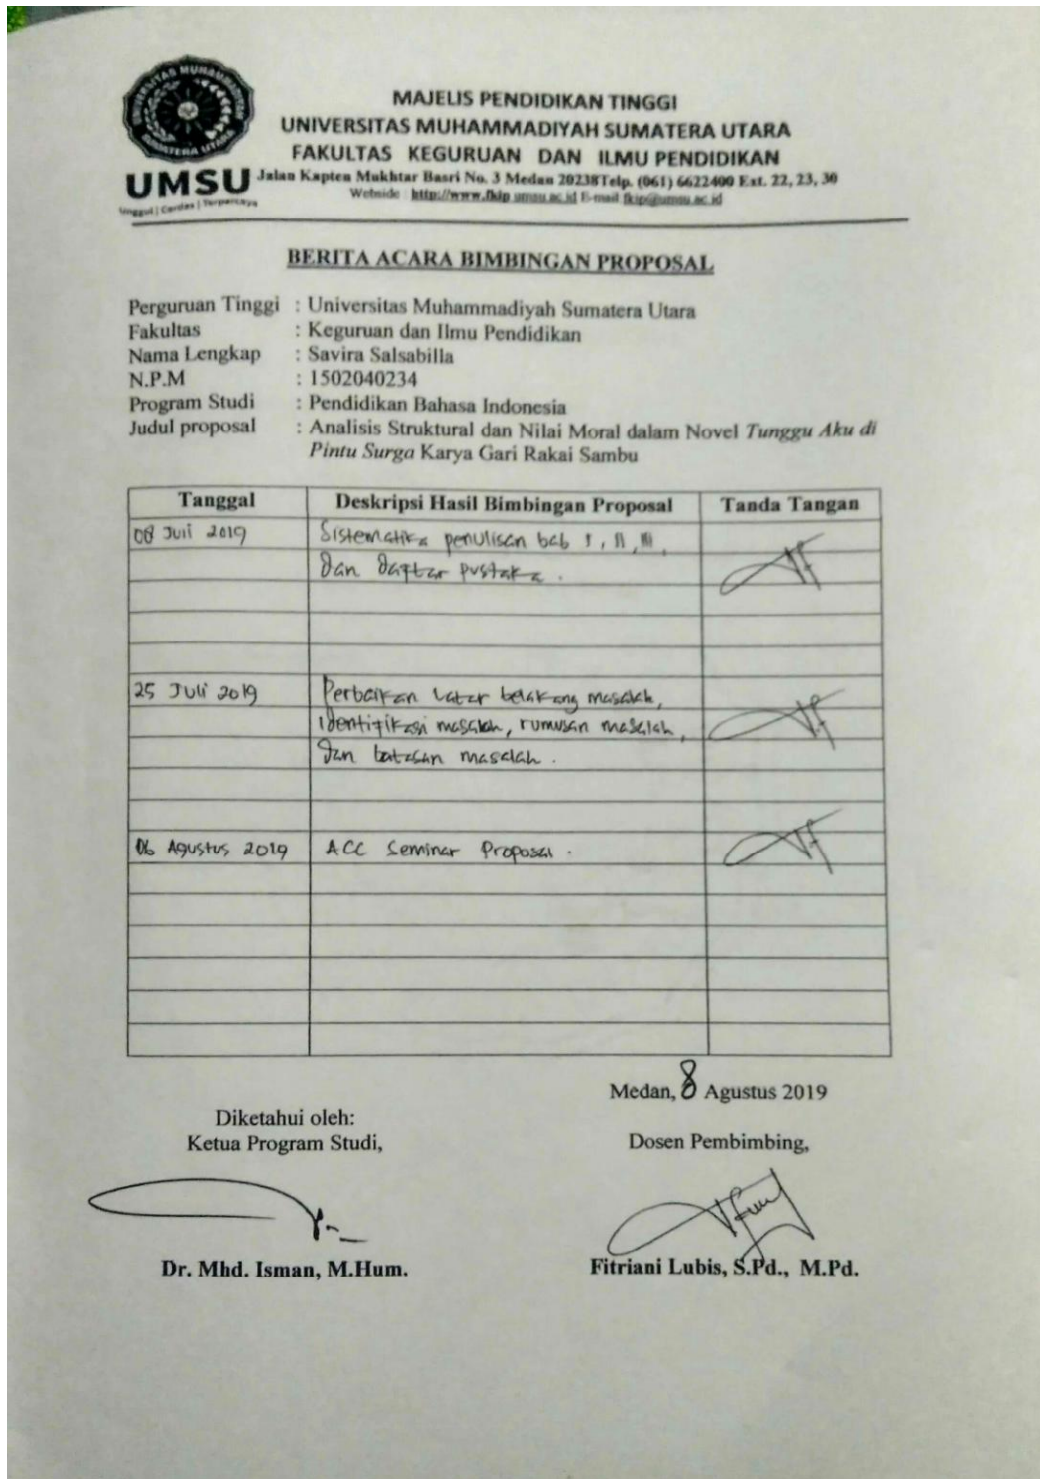 UNIVERSITAS MUHAMMADIYAH
SUMATERA UTARA
UMSU
Unggul | Cerdas | Terpercaya
MAJELIS PENDIDIKAN TINGGI
UNIVERSITAS MUHAMMADIYAH SUMATERA UTARA
FAKULTAS KEGURUAN DAN ILMU PENDIDIKAN
Jalan Kapten Mukhtar Basri No. 3 Medan 20238Telp. (061) 6622400 Ext. 22, 23, 30
Webside : http://www.fkip.umsu.ac.id E-mail fkip@umsu.ac.id
BERITA ACARA BIMBINGAN PROPOSAL
Perguruan Tinggi : Universitas Muhammadiyah Sumatera Utara
Fakultas : Keguruan dan Ilmu Pendidikan
Nama Lengkap : Savira Salsabilla
N.P.M : 1502040234
Program Studi : Pendidikan Bahasa Indonesia
Judul proposal : Analisis Struktural dan Nilai Moral dalam Novel Tunggu Aku di
Pintu Surga Karya Gari Rakai Sambu
Tanggal Deskripsi Hasil Bimbingan Proposal Tanda Tangan
08 Juli 2019 Sistematika penulisan bab I, II, III,
dan daftar pustaka.
25 Juli 2019 Perbaikan latar belakang masalah,
identifikasi masalah, rumusan masalah,
dan batasan masalah.
06 Agustus 2019 ACC Seminar Proposal.
Medan, 8 Agustus 2019
Diketahui oleh:
Ketua Program Studi, Dosen Pembimbing,
Dr. Mhd. Isman, M.Hum. Fitriani Lubis, S.Pd., M.Pd.